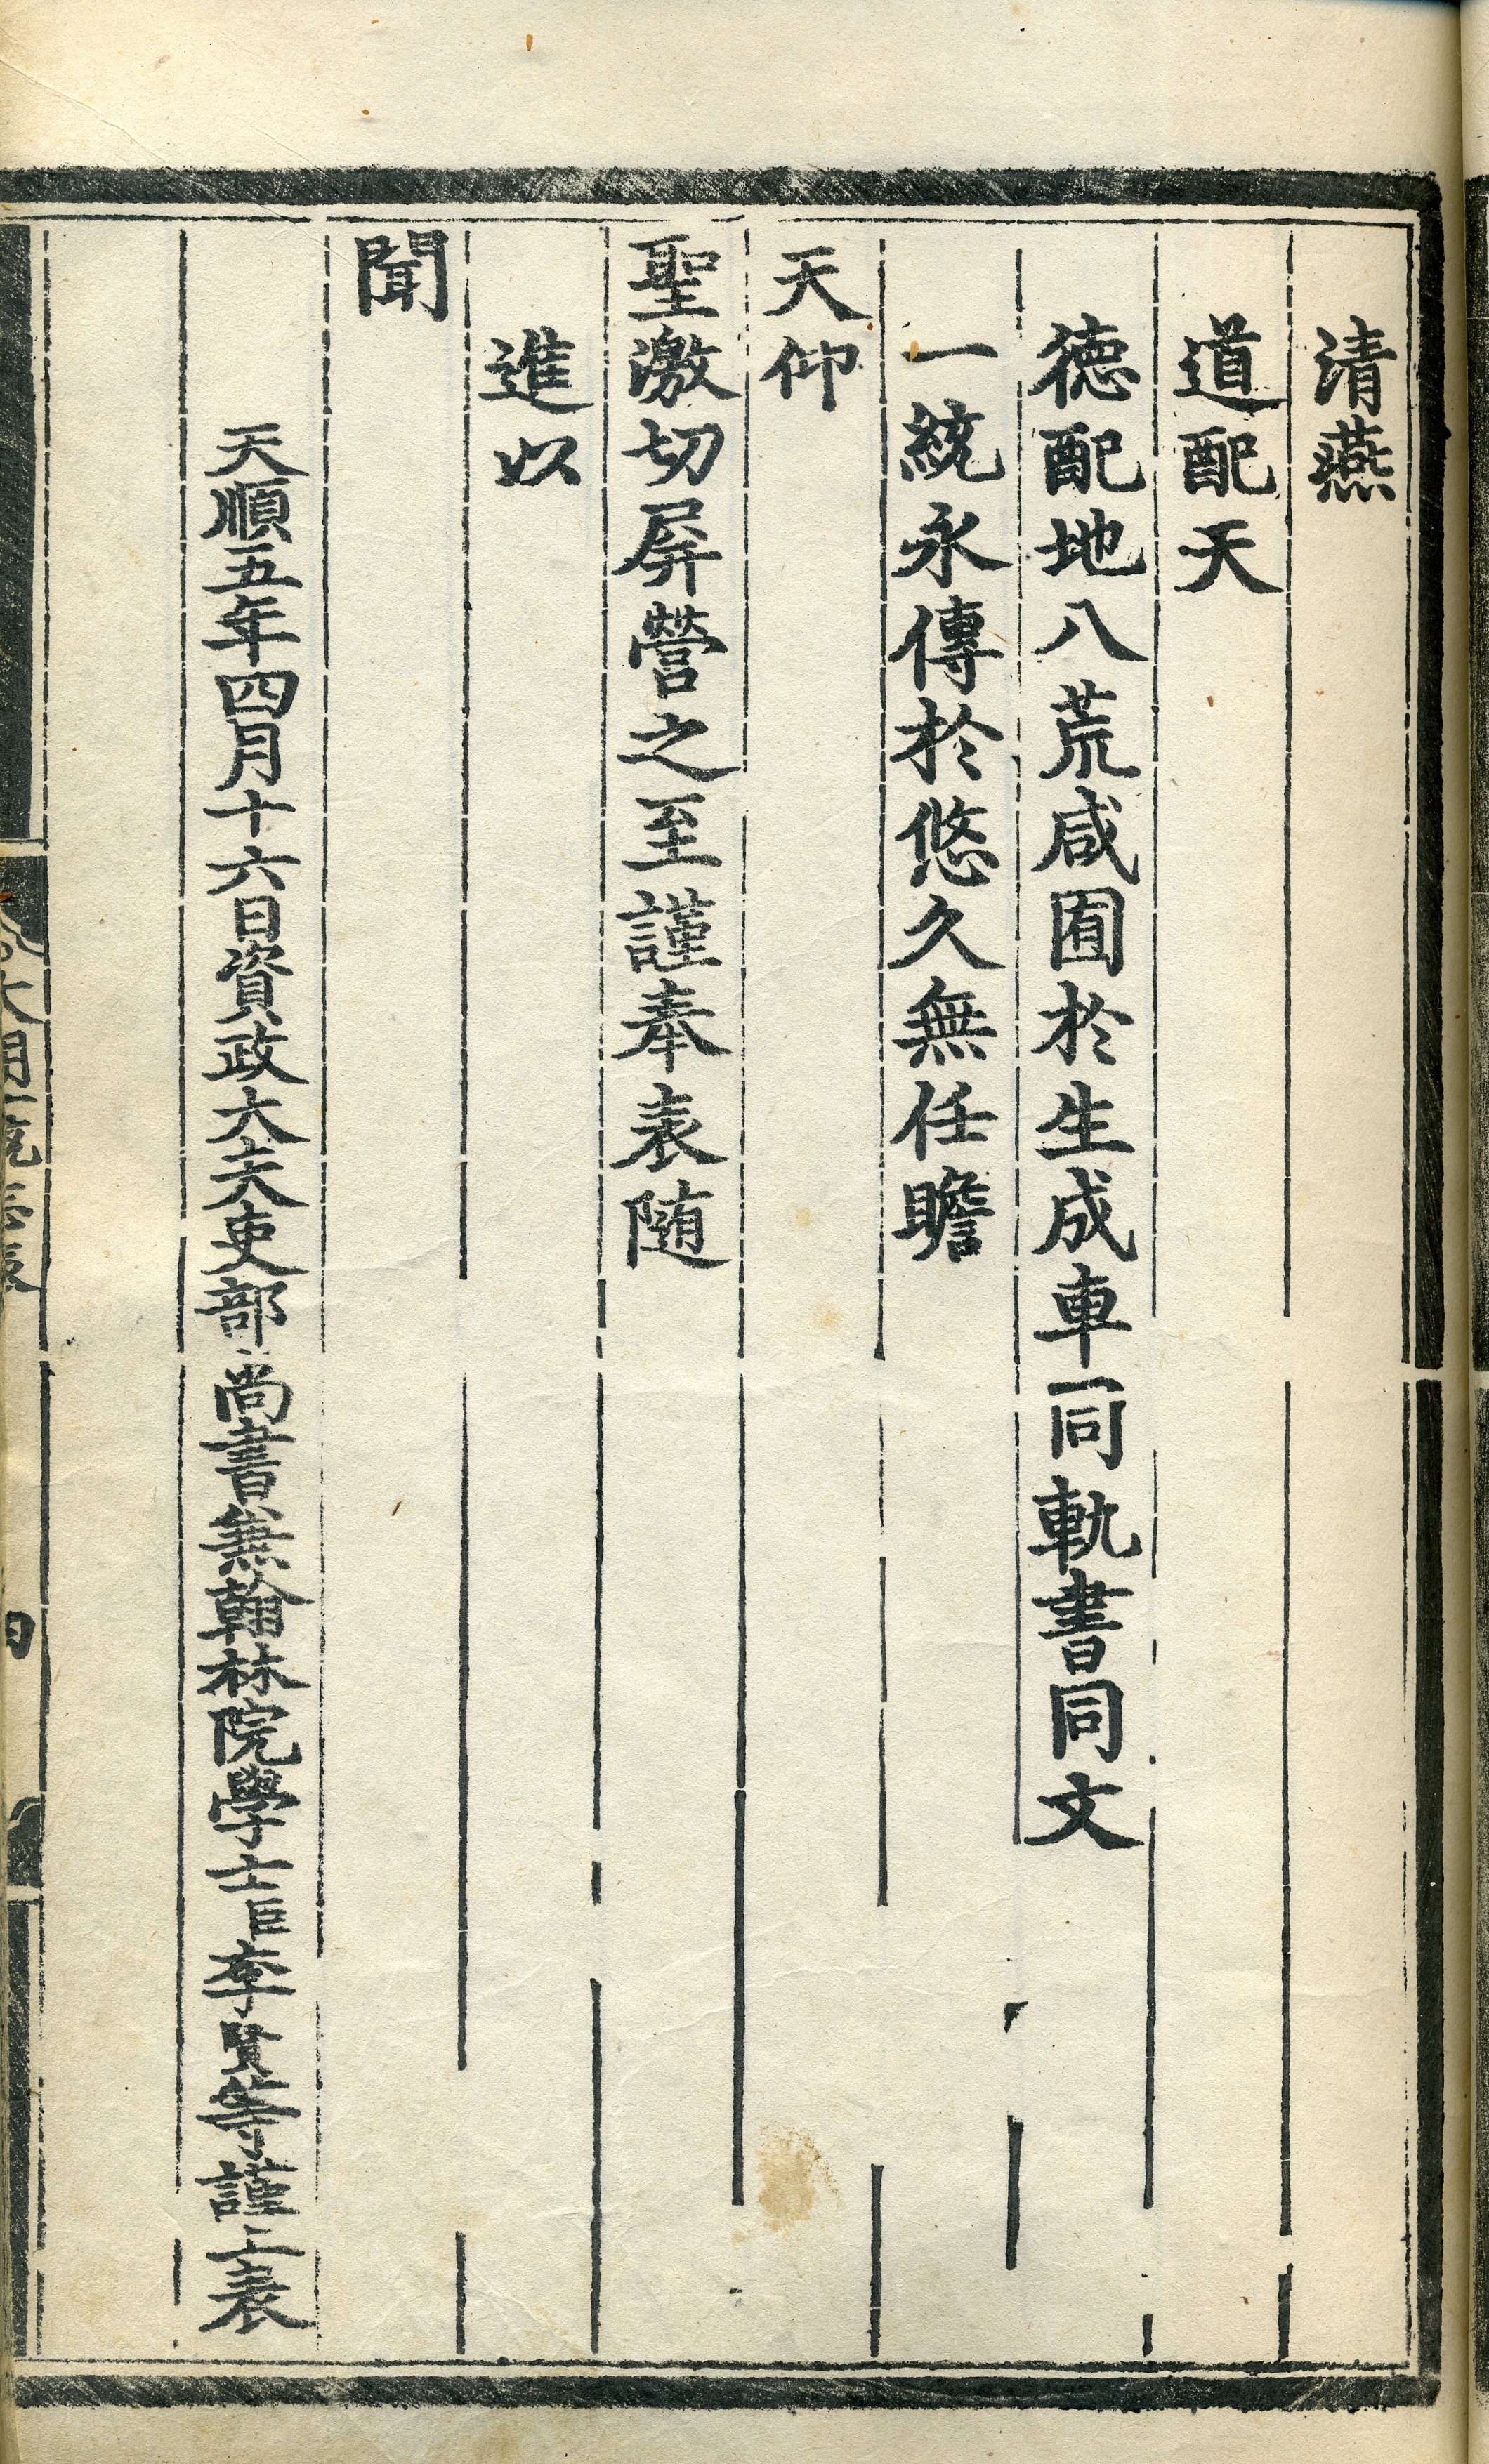 清燕
道配天
德配地八荒咸囿於生成車同軌書同文
一統永傳於悠久無任瞻
天仰
聖激切屏營之至謹奉表随
進以
聞
天順五年四月十六日資政大夫吏部尚書兼翰林院學士臣李賢等謹上表
大明一統志表
四